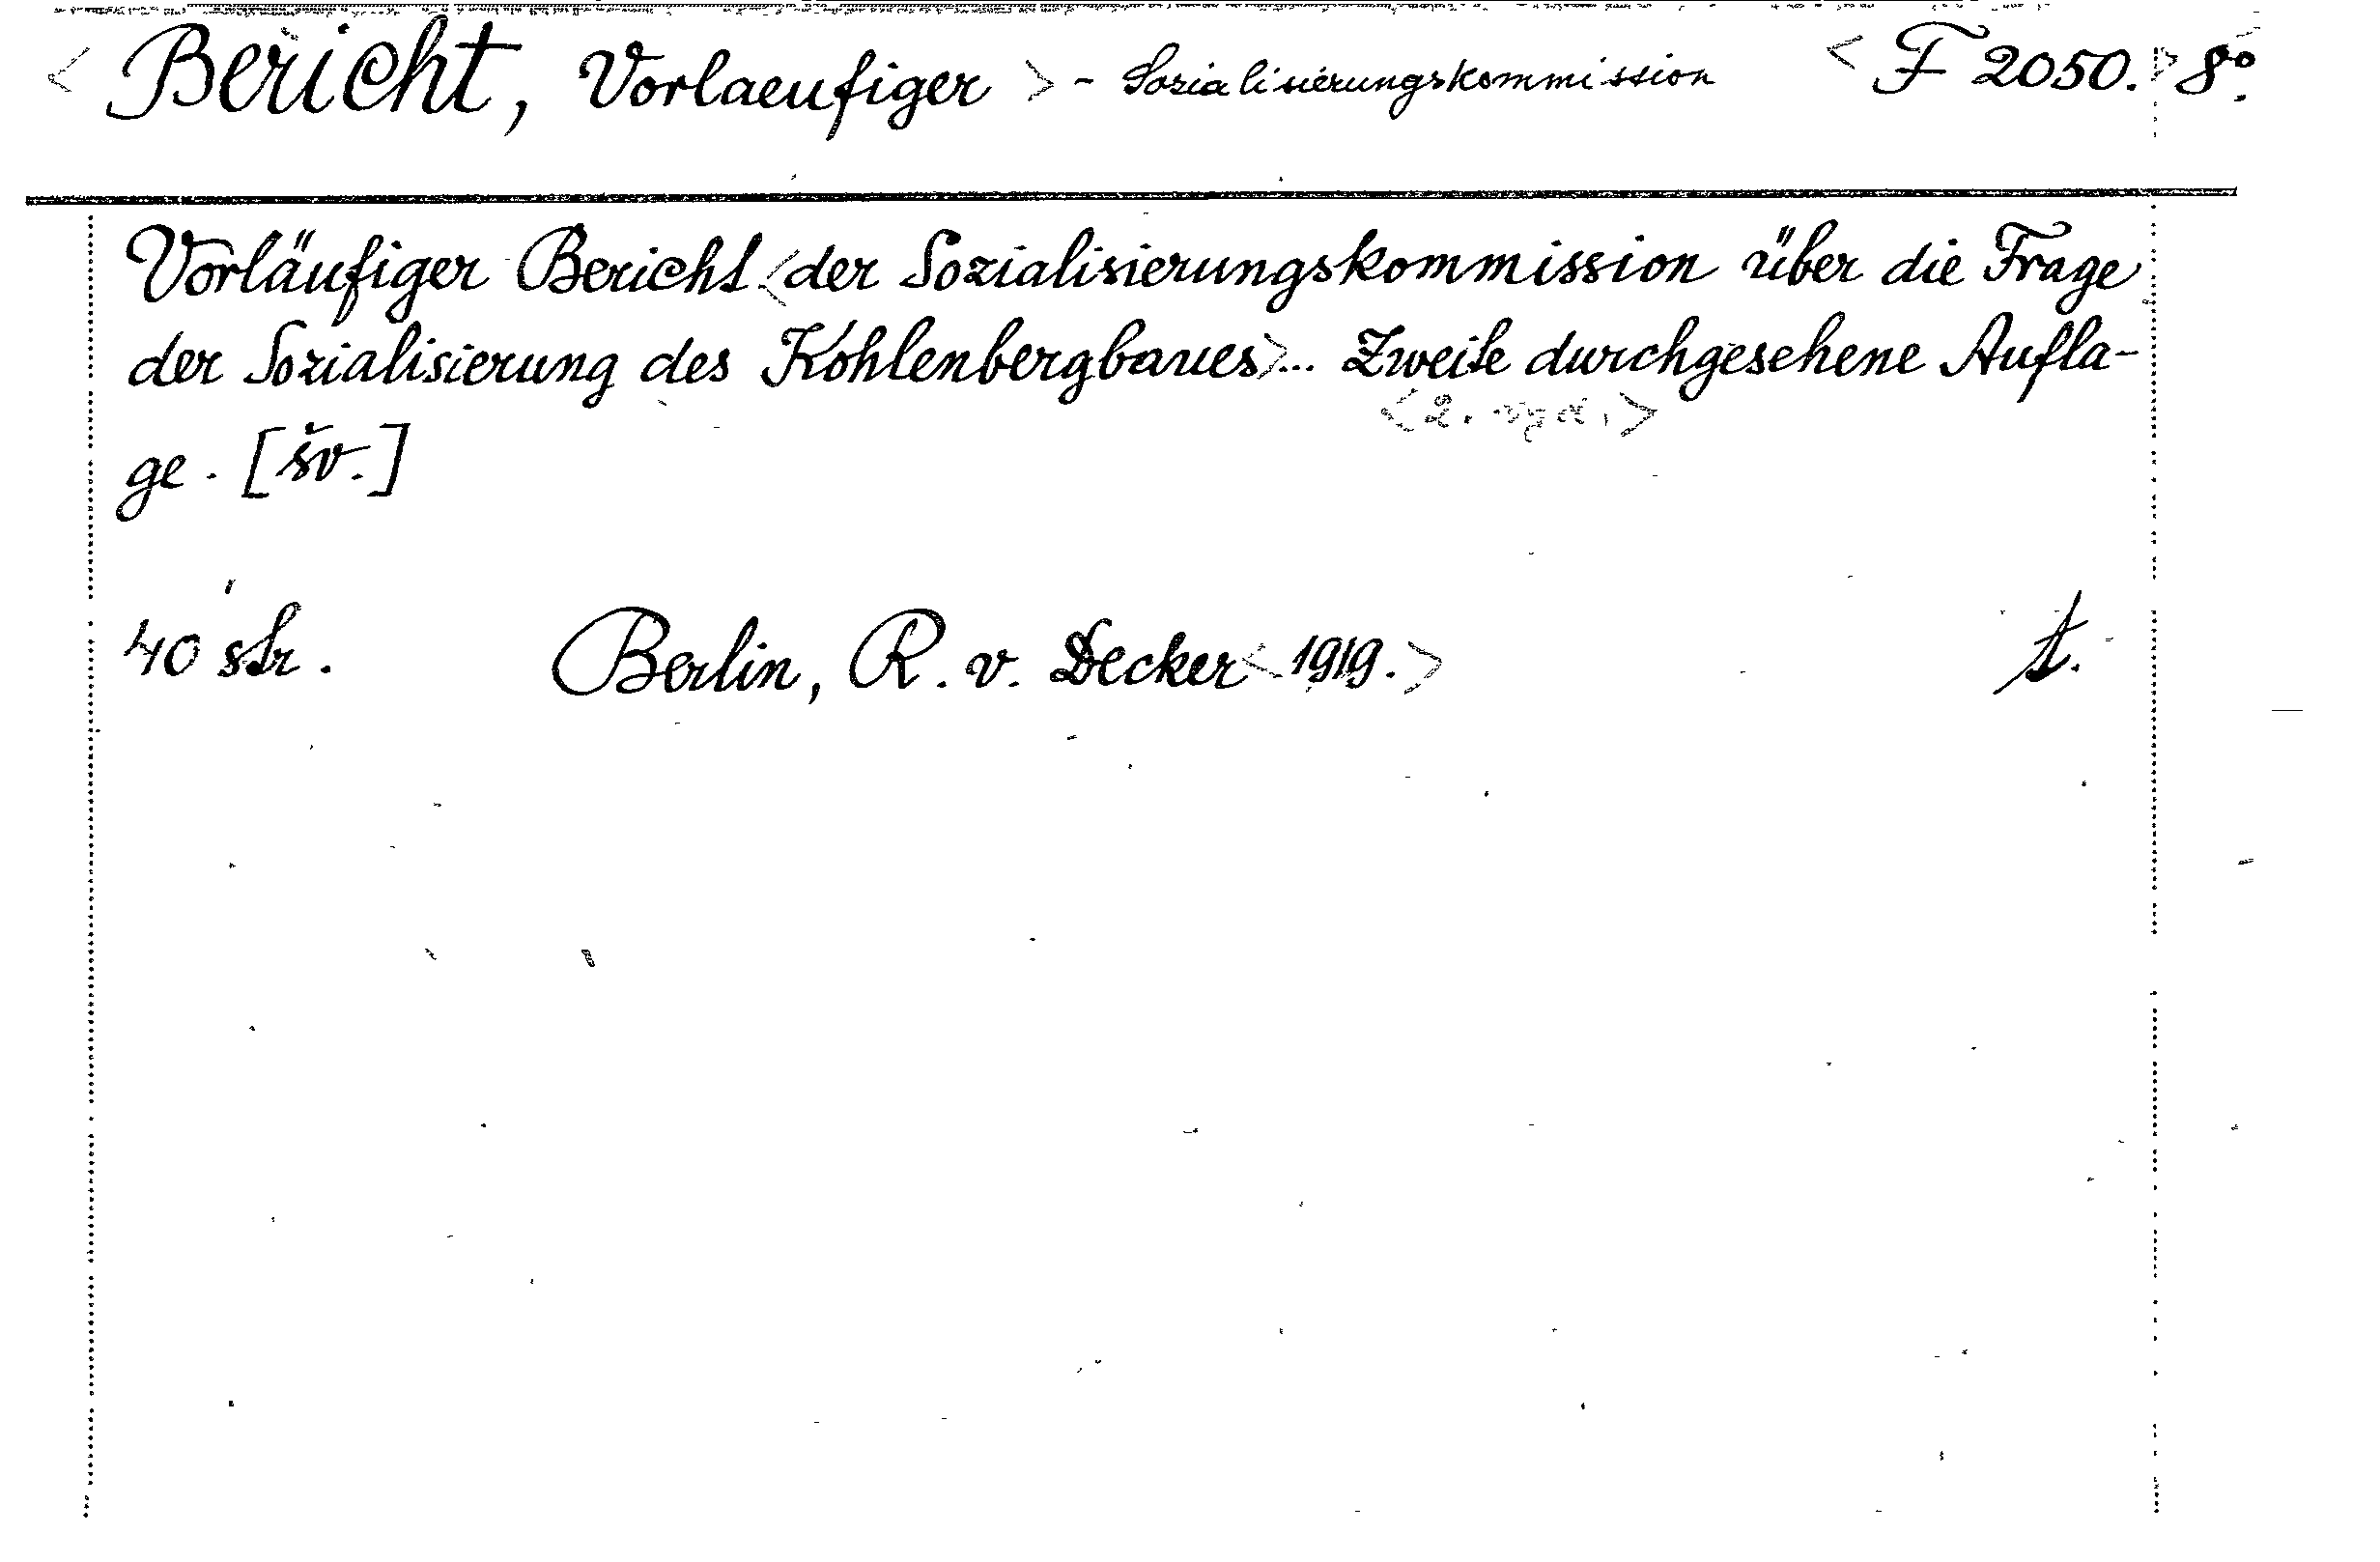 <Bericht, Vorlaeufiger> - Sozialisierungskommission <F 2050.> 8°.
Vorläufiger Bericht <der Sozialisierungskommission über die Frage
der Sozialisierung des Kohlenbergbaues>... Zweite durchgesehene Aufla-
<2. vyd.>
ge. [šv.]
40 str. Berlin, R. v. Decker <1919.> t.